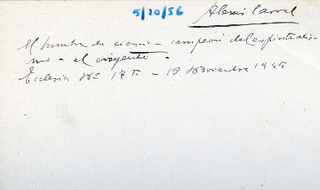 5/20/56 Alexis Carrel
El hombre de ciencia - campeón del espiritualis-
mo - el creyente.
Ecclesia Nº 175 - 18 Noviembre 1945